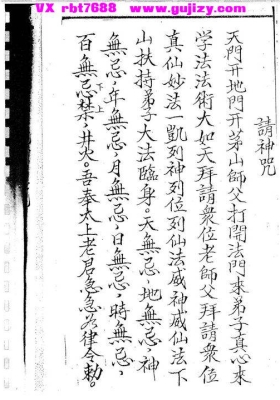 VX rbt7688 www.gujizy.com
請神咒
天門開地門開茅山師父打開法門來弟子真心來
学法法術大如天拜請衆位老師父拜請衆位
真仙妙法一凱列神列位列仙法威神威仙法下
山扶持弟子大法臨身。天無忌，地無忌，神
無忌，年無忌，月無忌，日無忌，時無忌，
百無忌禁，井火。吾奉太上老君急急如律令勅。